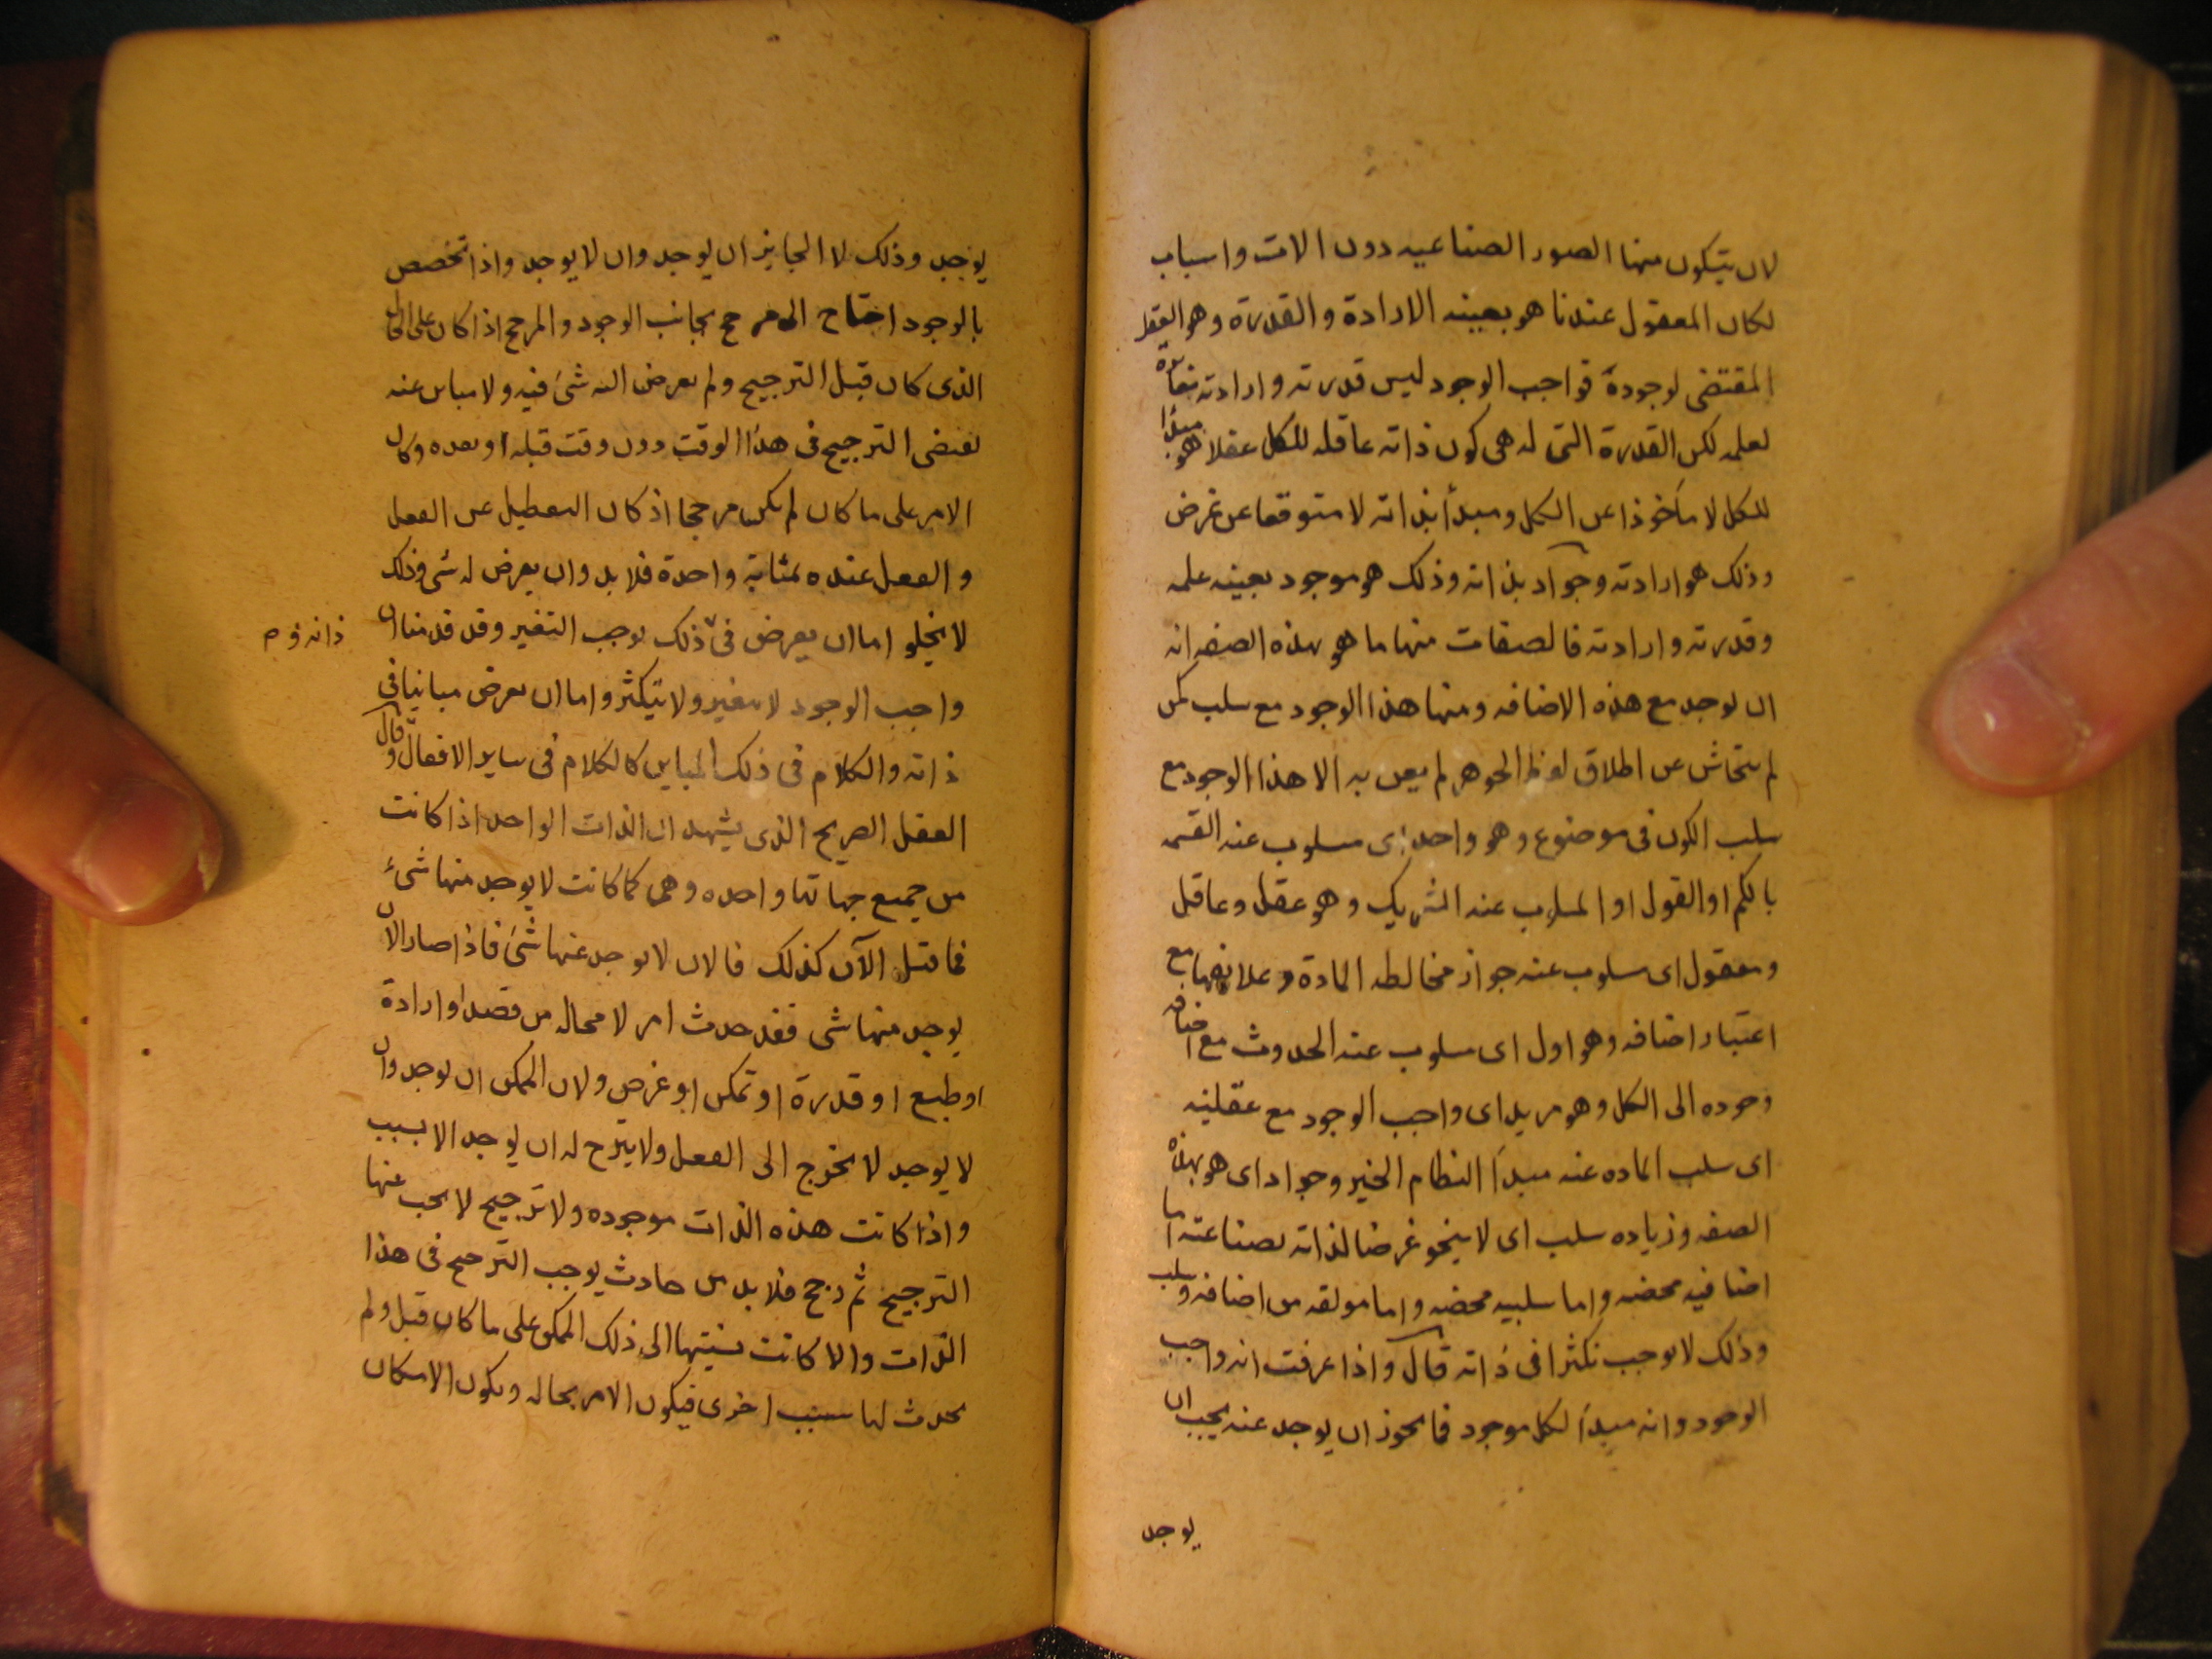 لان يتكون منها الصور الصناعيه دون الات واسباب
لكان المعقول عندنا هو بعينه الارادة والقدرة وهو العقل
المقتضى لوجوده فواجب الوجود ليس قدرته وارادته مغايرة
لعلمه لكن القدرة التى له هى كون ذاته عاقله للكل عقلا هو مبدأ
للكل لا مأخوذا عن الكل ومبدأ بذاته لا متوقفا عن غرض
وذلك هو ارادته وجواد بذاته وذلك هو موجود بعينه علمه
وقدرته وارادته فالصفات منها ما هو بهذه الصفه انه
ان يوجد مع هذه الاضافه ومنها هذا الوجود مع سلب كمن
لم يتحاش عن اطلاق لفظ الجوهر لم يعن به الا هذا الوجود مع
سلب الكون فى موضوع وهو واحد اى مسلوب عنه القسمه
بالكم او القول او المسلوب عنه الشريك وهو عقل وعاقل
ومعقول اى مسلوب عنه جواز مخالطه المادة وعلايقها مع
اعتبار اضافه وهو اول اى مسلوب عنه الحدوث مع اضافه
وجوده الى الكل وهو مريد اى واجب الوجود مع عقليته
اى سلب الماده عنه مبدأ النظام الخير وجواد اى هو بهذه
الصفه وزياده سلب اى لا ينحو غرضا لذاته بصناعته اما
اضافيه محضه واما سلبيه محضه واما مولفه من اضافه وسلب
وذلك لا يوجب تكثرا فى ذاته قال واذا عرفت انه واجب
الوجود وانه مبدأ لكل موجود فما يجوز ان يوجد عنه يجب ان
يوجد
يوجد وذلك لا الجايز ان يوجد وان لا يوجد واذا تخصص
بالوجود احتاج الى مرجح بجانب الوجود والمرجح اذا كان على الحال
الذى كان قبل الترجيح ولم يعرض البته شئ فيه ولا مباين عنه
يقتضى الترجيح فى هذا الوقت دون وقت قبله او بعده وكان
الامر على ما كان لم يكن مرجحا اذ كان التعطيل عن الفعل
والفعل عنده بمثابة واحدة فلا بد وان يعرض له شى وذلك
لا يخلو اما ان يعرض فى ذلك يوجب التغير وقد قدمنا ان
ذاته و م
واجب الوجود لا يتغير ولا يتكثر واما ان يعرض مباينا فى
ذاته والكلام فى ذلك المباين كالكلام فى ساير الافعال قال و
العقل الصريح الذى يشهد ان الذات الواحد اذا كانت
من جميع جهاتها واحده وهى كما كانت لا يوجد منها شئ
فما قبل الآن كذلك فالان لا يوجد عنها شئ فاذا صار الان
يوجد منها شى فقد حدث امر لا محاله من قصد او ارادة
او طبع او قدرة او تمكن او غرض ولان الممكن ان يوجد وان
لا يوجد لا يخرج الى الفعل ولا يترجح له ان يوجد الا بسبب
واذا كانت هذه الذات موجوده ولا ترجيح لا يجب عنها
الترجيح ثم رجح فلا بد من حادث يوجب الترجيح فى هذا
الذات والا كانت نسبتها الى ذلك الممكن على ما كان قبل ولم
يحدث لها سبب اخرى فيكون الامر بحاله ويكون الامكان